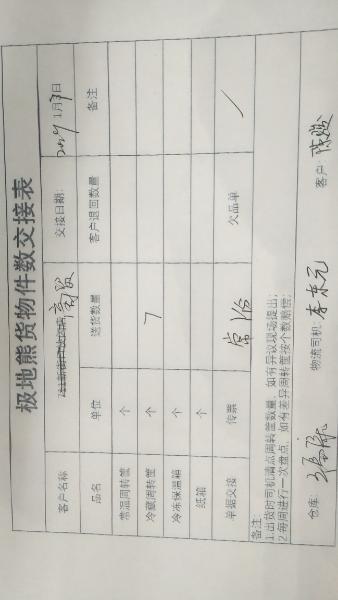 极地熊货物件数交接表
客户名称 高 交接日期: 2019 1月 日
品名 单位 送货数量 客户退回数量 备注
常温周转筐 个
冷藏周转筐 个 7
冷冻保温箱 个
纸箱 个
单据交接 传票 常 冷 欠品单 /
备注:
1.出货时司机清点周转筐数量, 如有异议现场提出;
2.每周进行一次盘点, 如有差异周转筐按个数赔偿;
仓库: 物流司机: 李东元 客户: